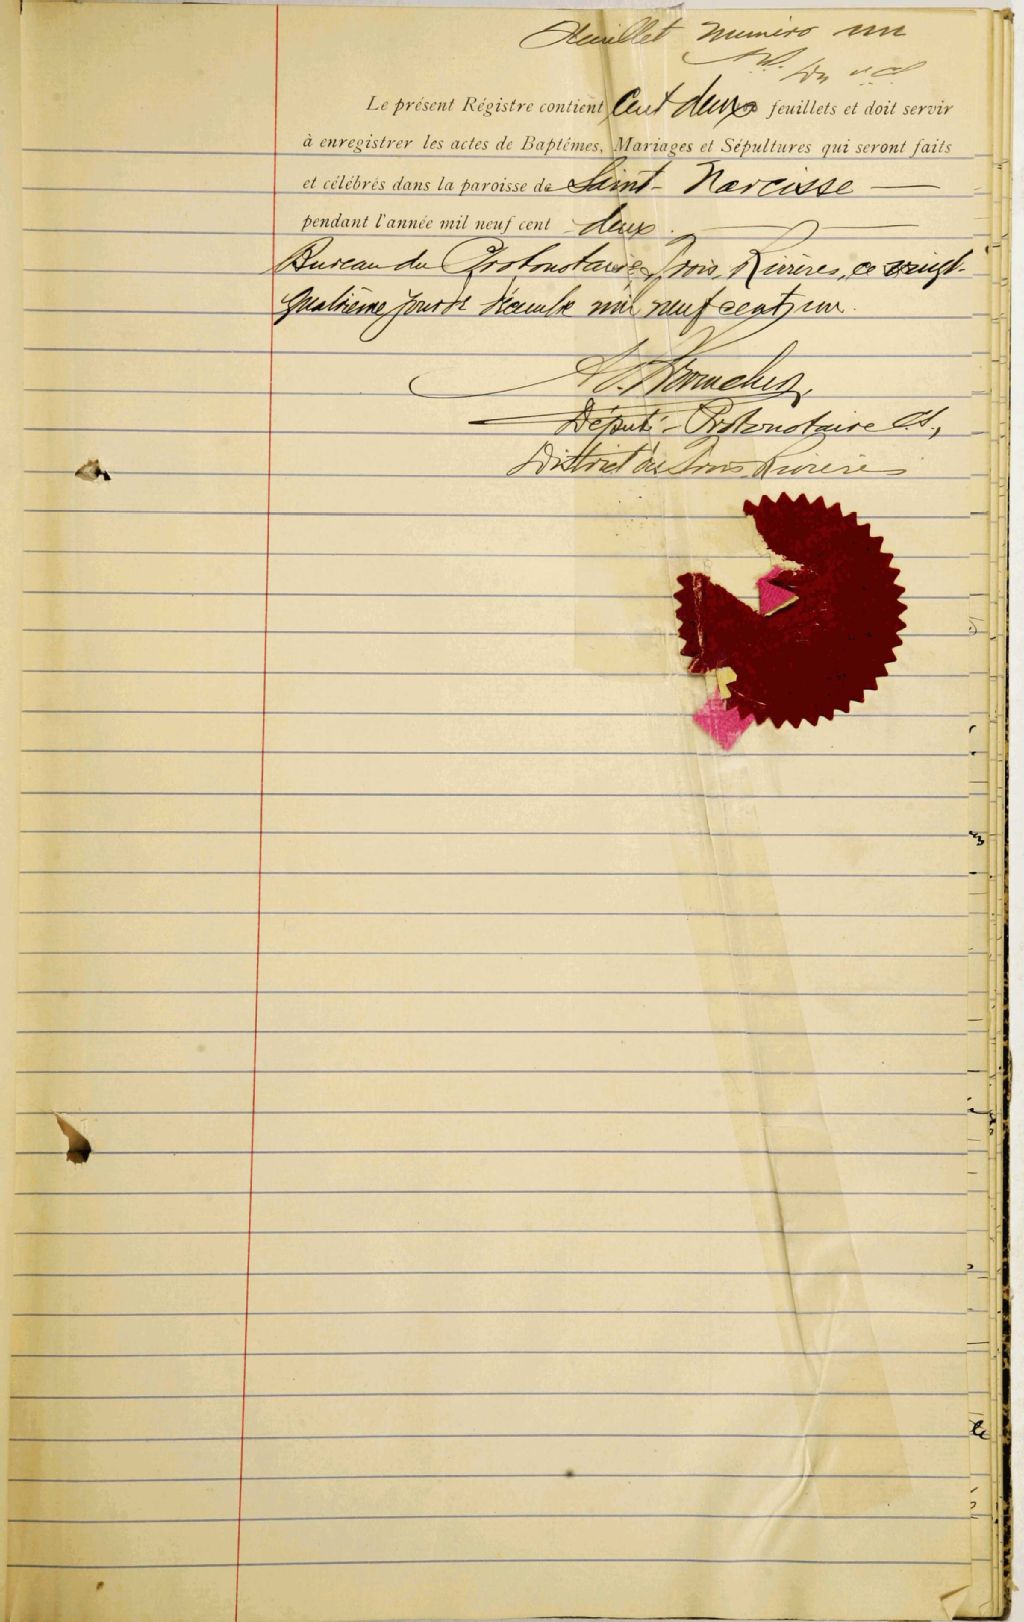 Feuillet numéro un
Le présent Régistre contient Cent deux feuillets et doit servir
à enregistrer les actes de Baptêmes, Mariages et Sépultures qui seront faits
et célébrés dans la paroisse de Saint-Narcisse
pendant l'année mil neuf cent deux.
Bureau du Protonotaire, Trois Rivières, ce vingt-
quatrième jour de décembre mil neuf cent un.
Député-Protonotaire C.S.,
District des Trois Rivières